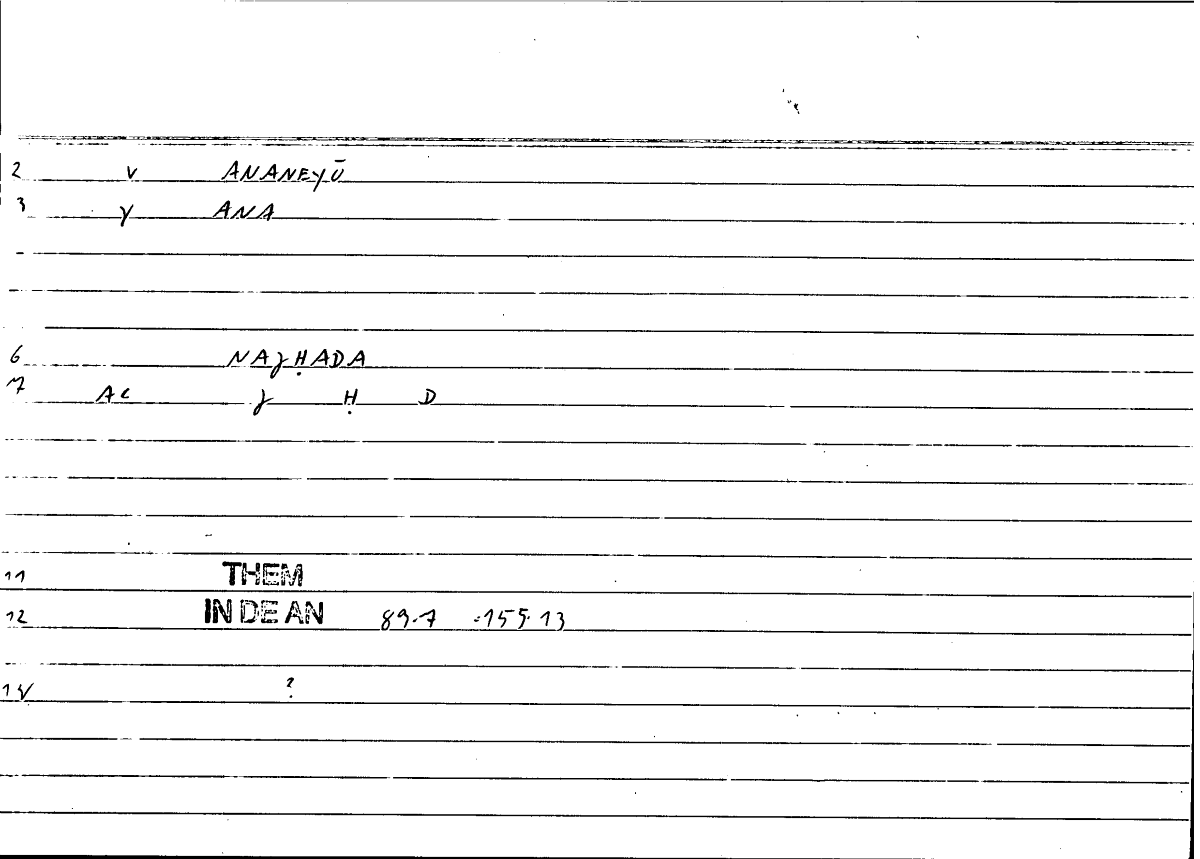 2 v ANANEYŪ
3 γ ANA
6 NAɣḤADA
7 AC ɣ Ḥ D
11 THEM
12 IN DE AN 89.7 :155.13
14 ?